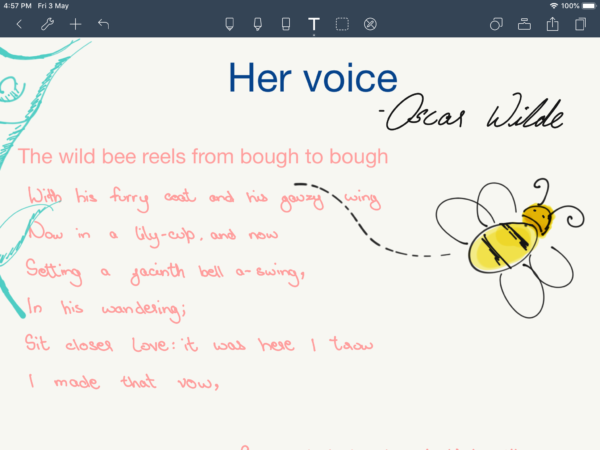 4:57 PM Fri 3 May 100%
T
Her voice
-Oscar Wilde
The wild bee reels from bough to bough
With his furry coat and his gauzy wing
Now in a lily-cup, and now
Setting a jacinth bell a-swing,
In his wandering;
Sit closer Love: it was here I trow
I made that vow,